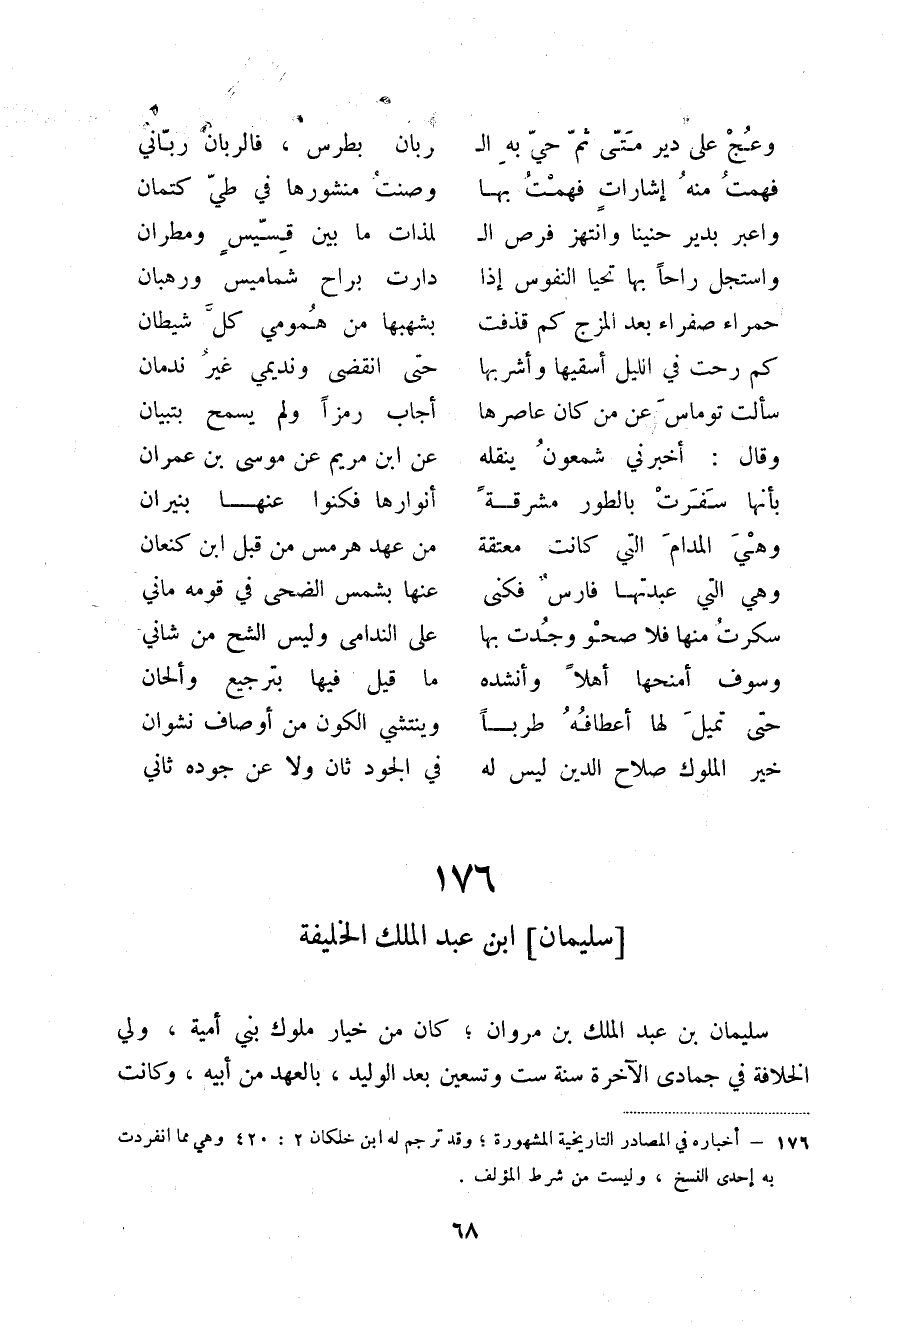 وعُجْ على دير متّى ثمّ حيّ به الـ ربان بطرس ، فالربان ربّاني
فهمتُ منهُ إشاراتٍ فهمْتُ بهـا وصنتُ منشورها في طيّ كتمان
واعبر بدير حنينا وانتهز فرص الـ لذات ما بين قسّيسٍ ومطران
واستجل راحاً بها تحيا النفوس إذا دارت براح شماميس ورهبان
حمراء صفراء بعد المزج كم قذفت بشهبها من هُمومي كلَّ شيطان
كم رحت في الليل أسقيها وأشربها حتّى انقضى ونديمي غيرُ ندمان
سألت توماسَ عن من كان عاصرها أجاب رمزاً ولم يسمح بتبيان
وقال : أخبرني شمعونُ ينقله عن ابن مريم عن موسى بن عمران
بأنها سَفَرَتْ بالطور مشرقـةً أنوارها فكنوا عنهـــا بنيران
وهْيَ المدامَ التي كانت معتقة من عهد هرمس من قبل ابن كنعان
وهي التي عبدتهـا فارسٌ فكنى عنها بشمس الضحى في قومه ماني
سكرتُ منها فلا صحوْ وجُدت بها على الندامى وليس الشح من شاني
وسوف أمنحها أهلاً وأنشده ما قيل فيها بترجيع وألحان
حتّى تميلَ لها أعطافُهُ طربـاً وينتشي الكون من أوصاف نشوان
خير الملوك صلاح الدين ليس له في الجود ثان ولا عن جوده ثاني
١٧٦
[سليمان] ابن عبد الملك الخليفة
سليمان بن عبد الملك بن مروان ؛ كان من خيار ملوك بني أمية ، ولي
الخلافة في جمادى الآخرة سنة ست وتسعين بعد الوليد ، بالعهد من أبيه ، وكانت
١٧٦ – أخباره في المصادر التاريخية المشهورة ؛ وقد ترجم له ابن خلكان ٢ : ٤٢٠ وهي مما انفردت
به إحدى النسخ ، وليست من شرط المؤلف .
٦٨